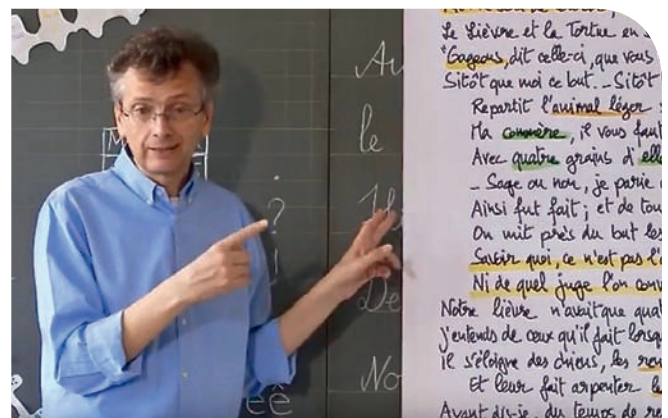 Le Lièvre et la Tortue en
"Gageons, dit celle-ci, que vous
Sitôt que moi ce but._ Sitôt
Repartit l'animal léger
Ma commère, il vous faut
Avec quatre grains d'ellé
_ Sage ou non, je parie
Ainsi fut fait ; et de tou
On mit près du but les
Savoir quoi, ce n'est pas l'a
Ni de quel juge l'on conv
Notre lièvre n'avait que quat
j'entends de ceux qu'il fait lorsq
il s'éloigne des chiens, les ren
Et leur fait arpenter l
Ayant dis-je, du temps de
Au
le
?
!
De
No
eê